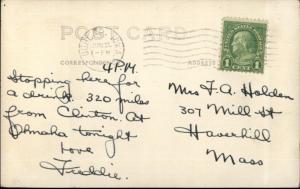 POST CARD
CORRESPONDENCE
ADDRESS
1 PM
4 P.M.
Stopping here for
a drink. 320 miles
from Clinton. At
Omaha tonight
Love
Freddie.
Mrs F. A. Holden
307 Mill St
Haverhill
Mass
1 1